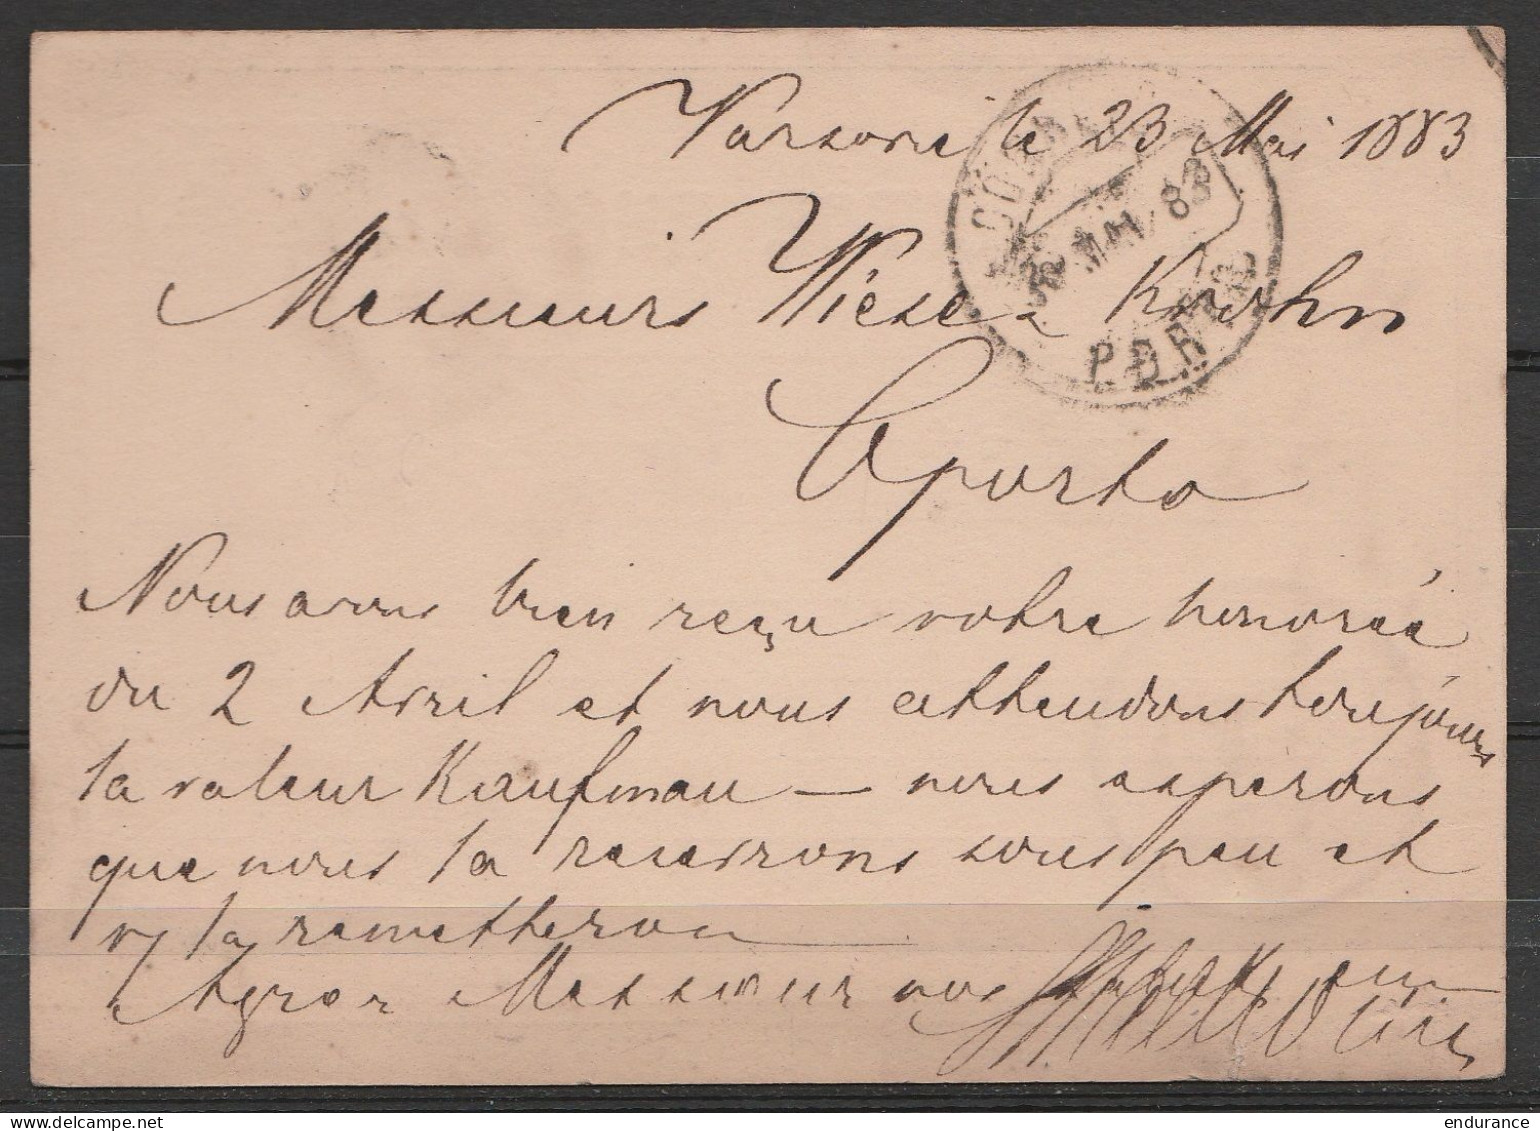 Varsovie le 23 Mai 1883
Messieurs Wiese & Krohn
Oporto
Nous avons bien reçu votre honorée
du 2 Avril et nous attendons toujours
la valeur Kaufmau — nous esperons
que nous la recevrons sous peu et
la remetteron
Agréez Messieur nos
CORR
MAI 83
PORTO
delcampe.net
endurance